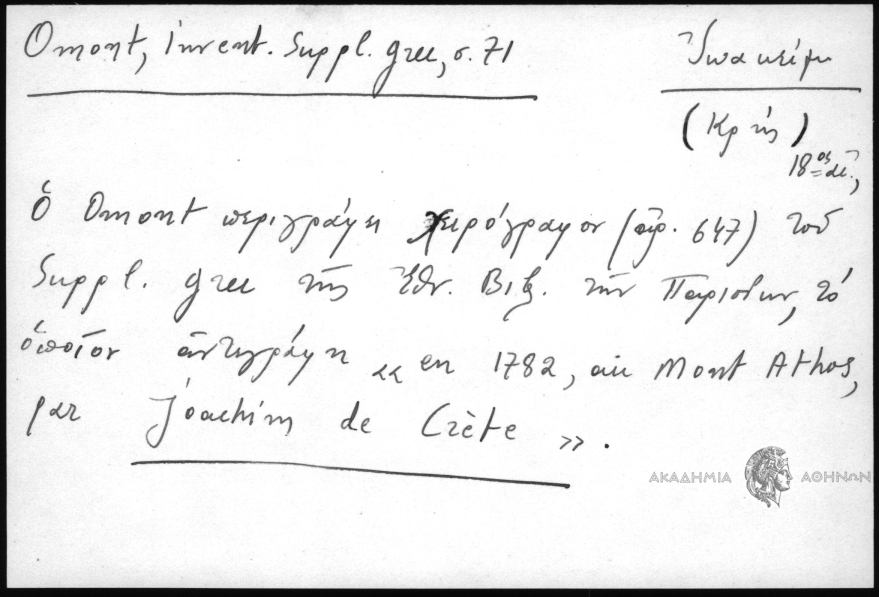 Omont, Invent. Suppl. grec, σ. 71
Ἰωακείμ
(Κρής)
18ος αἰ.,
Ὁ Omont περιγράφει χειρόγραφον (ἀρ. 647) τοῦ
Suppl. grec τῆς Ἐθν. Βιβ. τῶν Παρισίων, τό
ὁποῖον ἀντεγράφη «en 1782, au Mont Athos,
par Joachim de Crète».
ΑΚΑΔΗΜΙΑ ΑΘΗΝΩΝ